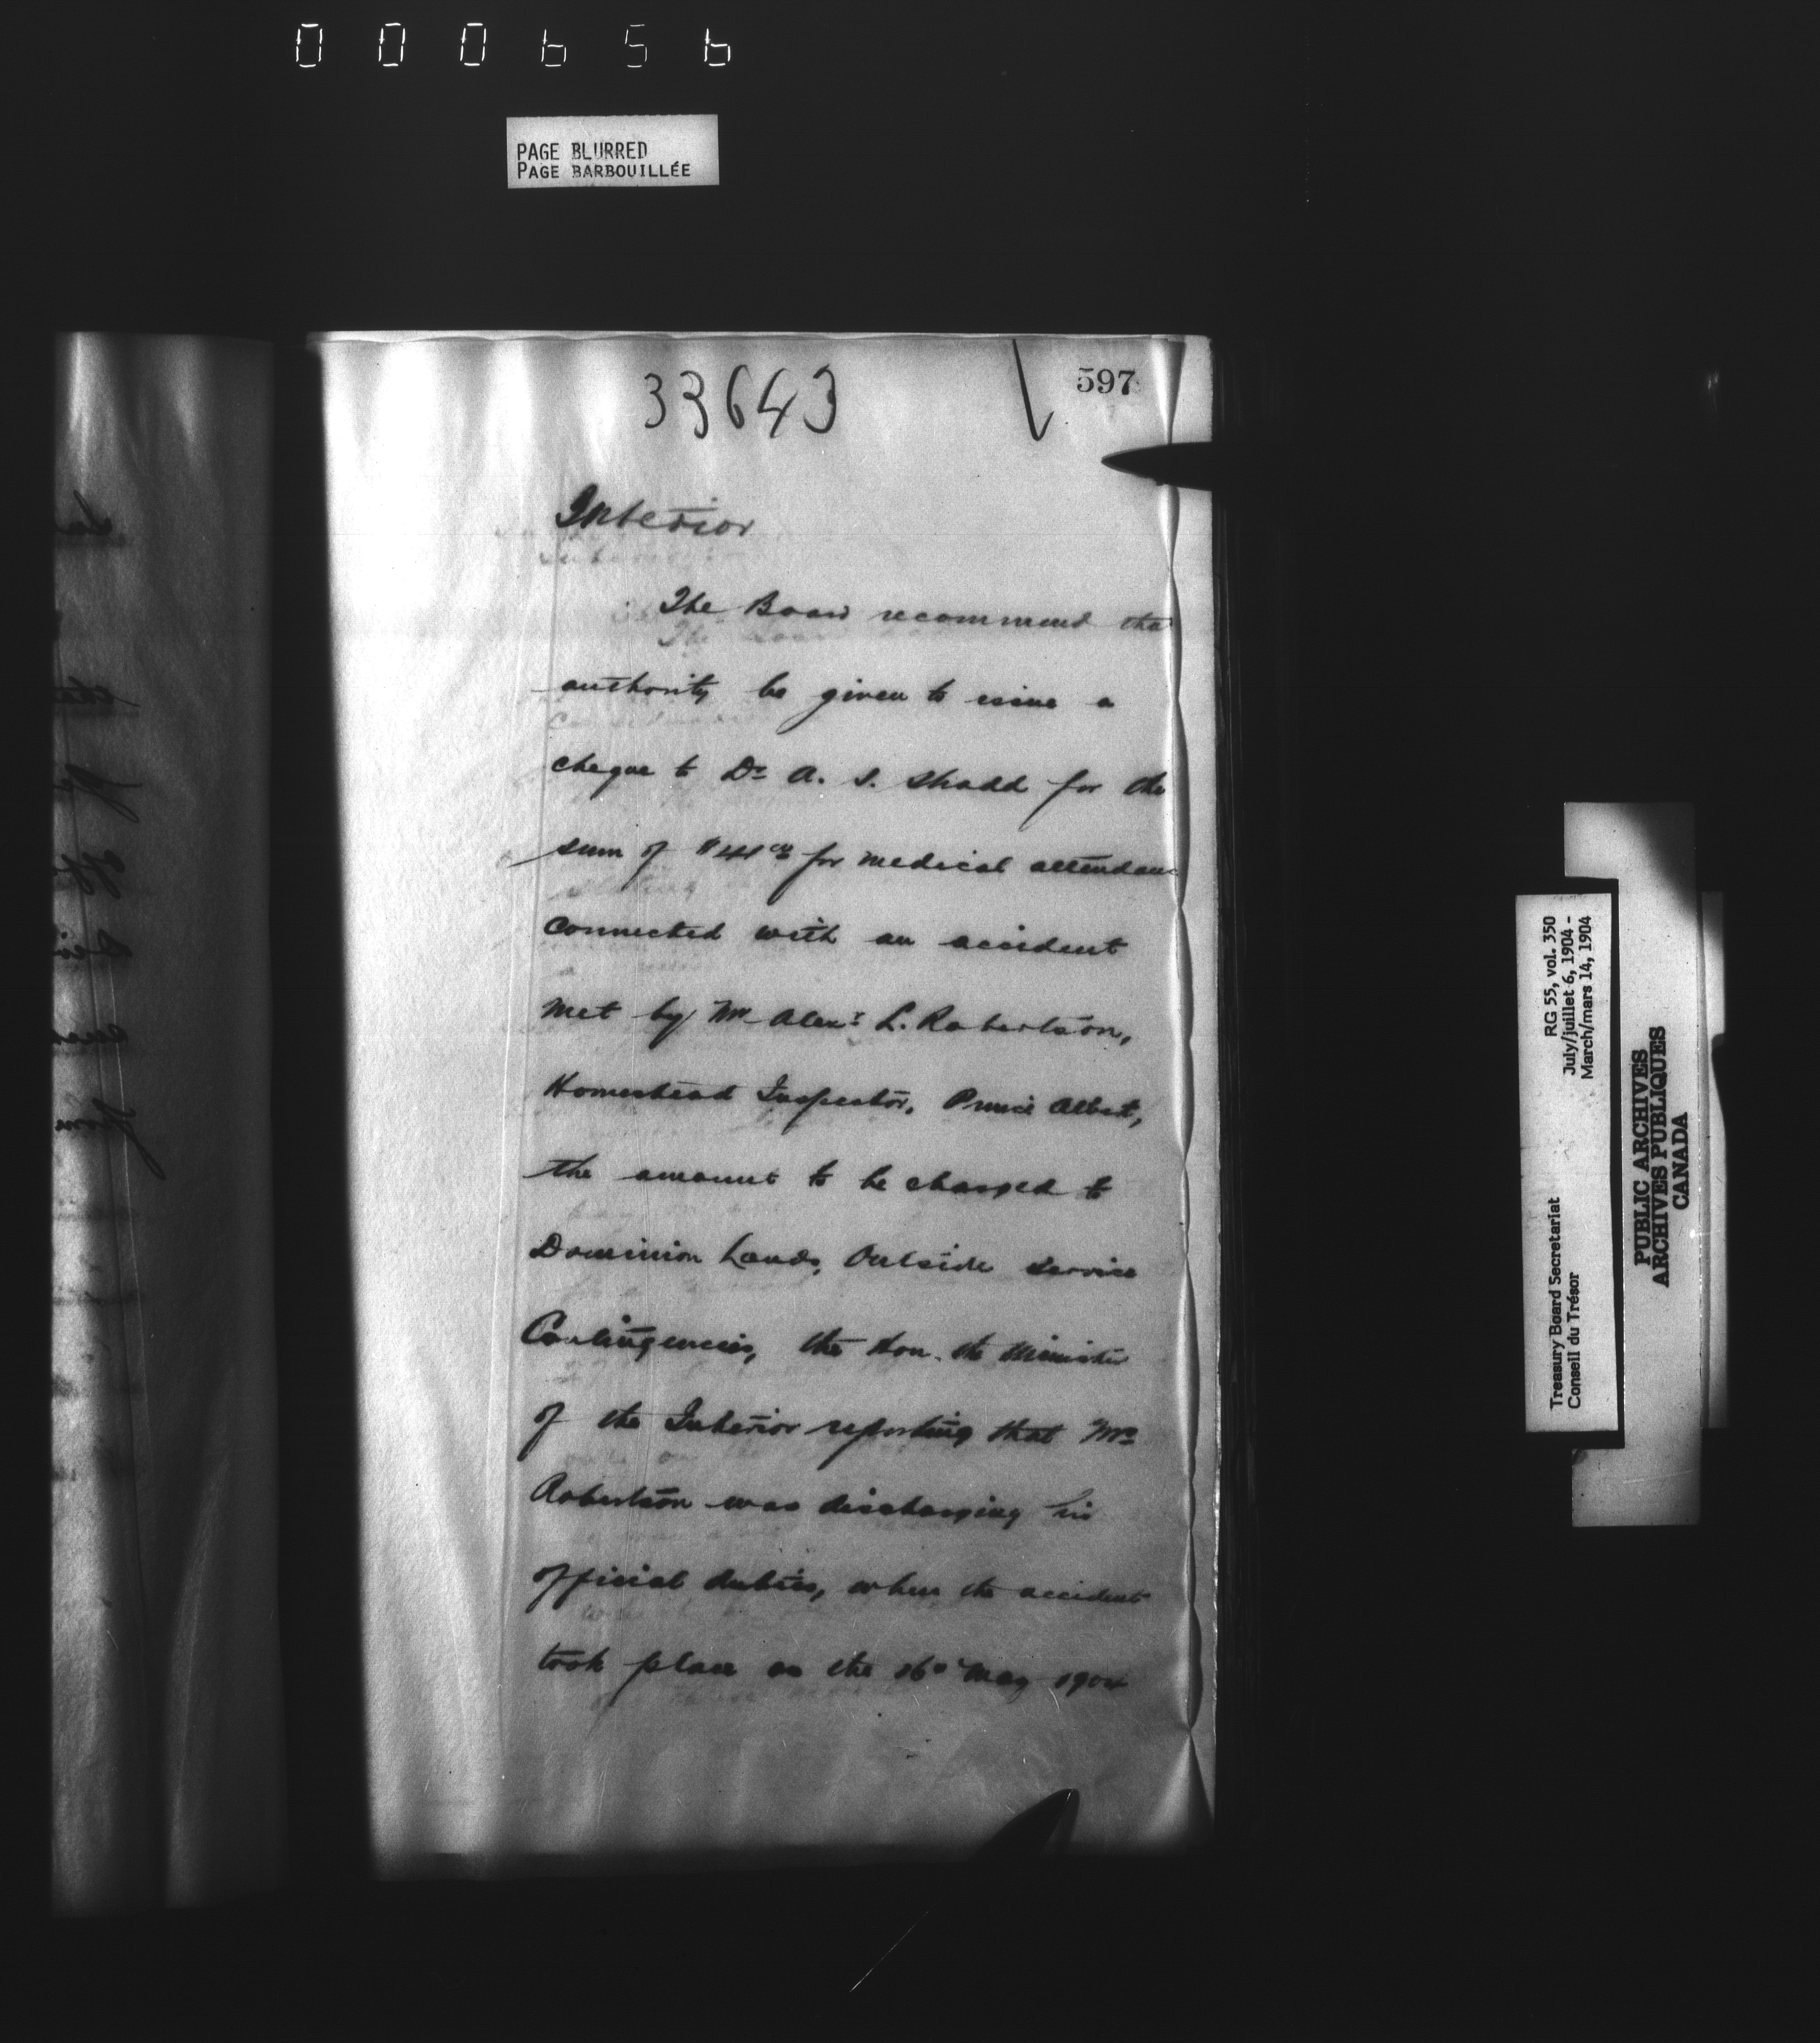 000656
PAGE BLURRED
PAGE BARBOUILLÉE
597
33643
Interior
The Board recommend tha
authority be given to issue a
cheque to Dr A. S. Shadd for the
sum of $41 00 for medical attendanc
connected with an accident
met by Mr Alexr L. Robertson,
Homestead Inspector, Prince Albert,
the amount to be charged to
Dominion Lands, Outside Service
Contingencies, the Hon. the Minister
of the Interior reporting that Mr
Robertson was discharging his
official duties, when the accident
took place on the May 1904
RG 55, vol. 350
July/juillet 6, 1904 -
March/mars 14, 1904
Treasury Board Secretariat
Conseil du Trésor
PUBLIC ARCHIVES
ARCHIVES PUBLIQUES
CANADA